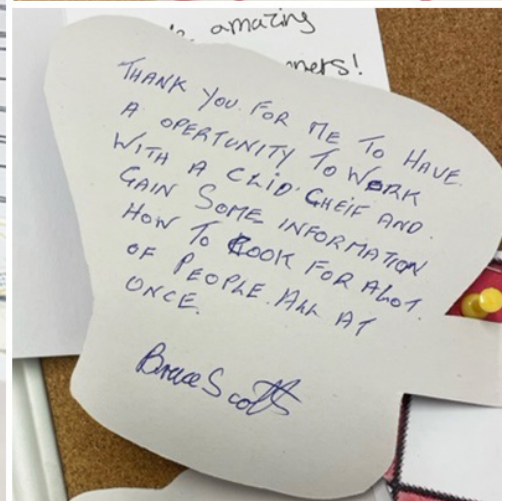 amazing
THANK YOU. FOR ME TO HAVE.
A OPERTUNITY TO WORK
WITH A CLID. CHEIF AND.
GAIN SOME INFORMATION
HOW TO COOK FOR ALOT.
OF PEOPLE. ALL AT
ONCE.
Bruce Scott